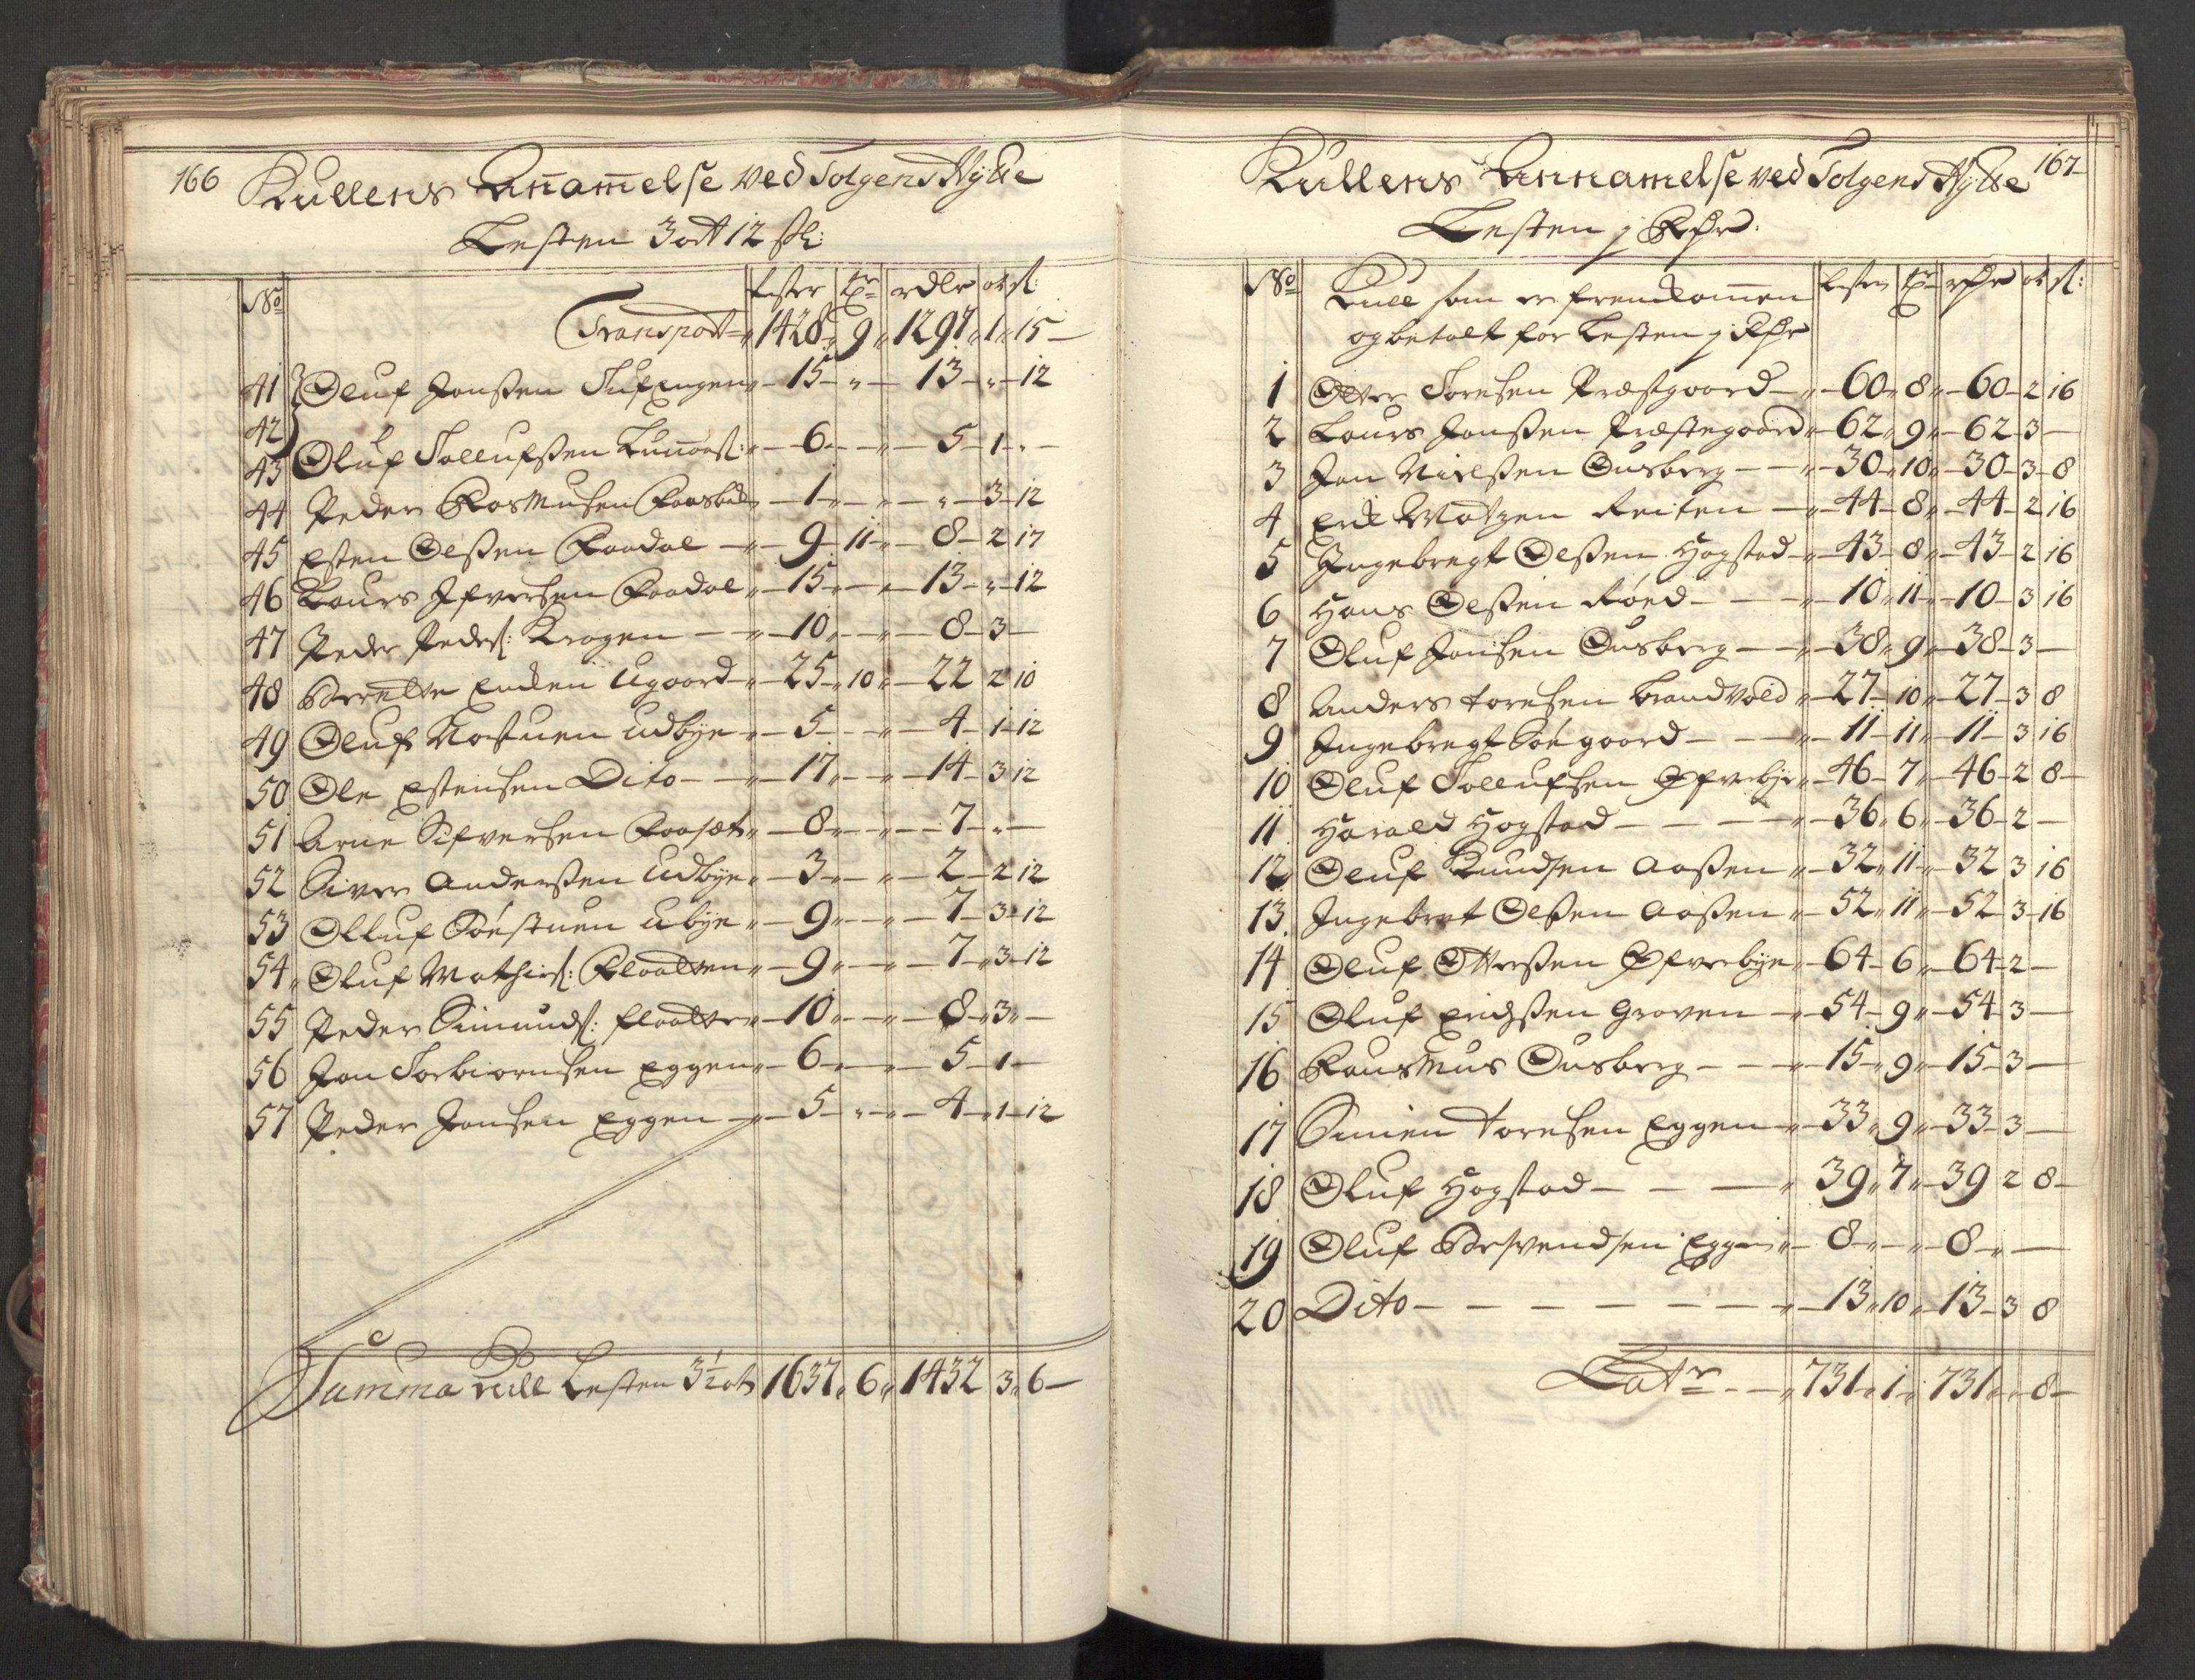 166 Kullens Annamelse ved Tolgens Hÿtte
Lesten 3 ort 12 sk:
No Lester Tr rdlr ort sk:
Transport 1428 9 1297 1 15
41 Oluf Jonßen 15 13 12
42
43 Oluf Tollufßen 6 5 1
44 Peder Rasmusen 1 3 12
45 Esten Olßen Raadal 9 11 8 2 17
46 Laurs Ifversen Raadal 15 13 12
47 Peder Peders: Krogen 10 8 3
48 Berette Enkeü Ugaard 25 10 22 2 10
49 Oluf Nastuen Udbÿe 5 4 1 12
50 Ole Estensen Dito 17 14 3 12
51 Arne Sifversen 8 7
52 Siver Anderßen Udbÿe 3 2 2 12
53 Olluf Söestuen Ubÿe 9 7 3 12
54 Oluf Mathies: Flaatten 9 7 3 12
55 Peder Simunds: Flaatte 10 8 3
56 Jon Torbiornsen Eggen 6 5 1
57 Peder Jonsen Eggen 5 4 1 12
Summa Kull Lesten 3½ ort 1637 6 1432 3 6
Kullens Annamelse ved Tolgens Hÿtte 167
Lesten j Rdr.
No Kull som er fremkommen Lester Tr rdr ort sk:
og betalt for Lesten j Rdr
1 Otter Toresen Præstgaard 60 8 60 2 16
2 Laurs Jonßen Præstegaard 62 9 62 3
3 Jon Nielßen Ousberg 30 10 30 3 8
4 Erik Matzen Reiten 44 8 44 2 16
5 Ingebregt Olßen Hogstad 43 8 43 2 16
6 Hans Olßen Röed 10 11 10 3 16
7 Oluf Jonsen Ousberg 38 9 38 3
8 Anders Toresen Brandvold 27 10 27 3 8
9 Ingebregt Söegaard 11 11 11 3 16
10 Oluf Tollufsen Öfverbÿe 46 7 46 2 8
11 Harald Hogstad 36 6 36 2
12 Oluf Knudsen Aaßen 32 11 32 3 16
13 Ingebret Olßen Aaßen 52 11 52 3 16
14 Oluf Otterßen Öfverbÿe 64 6 64 2
15 Oluf Erichßen Groven 54 9 54 3
16 Rasmus Ousberg 15 9 15 3
17 Simen Toresen Eggen 33 9 33 3
18 Oluf Hogstad 39 7 39 2 8
19 Oluf Bersvendsen Eggen 8 8
20 Dito 13 10 13 3 8
Latr 731 1 731 8